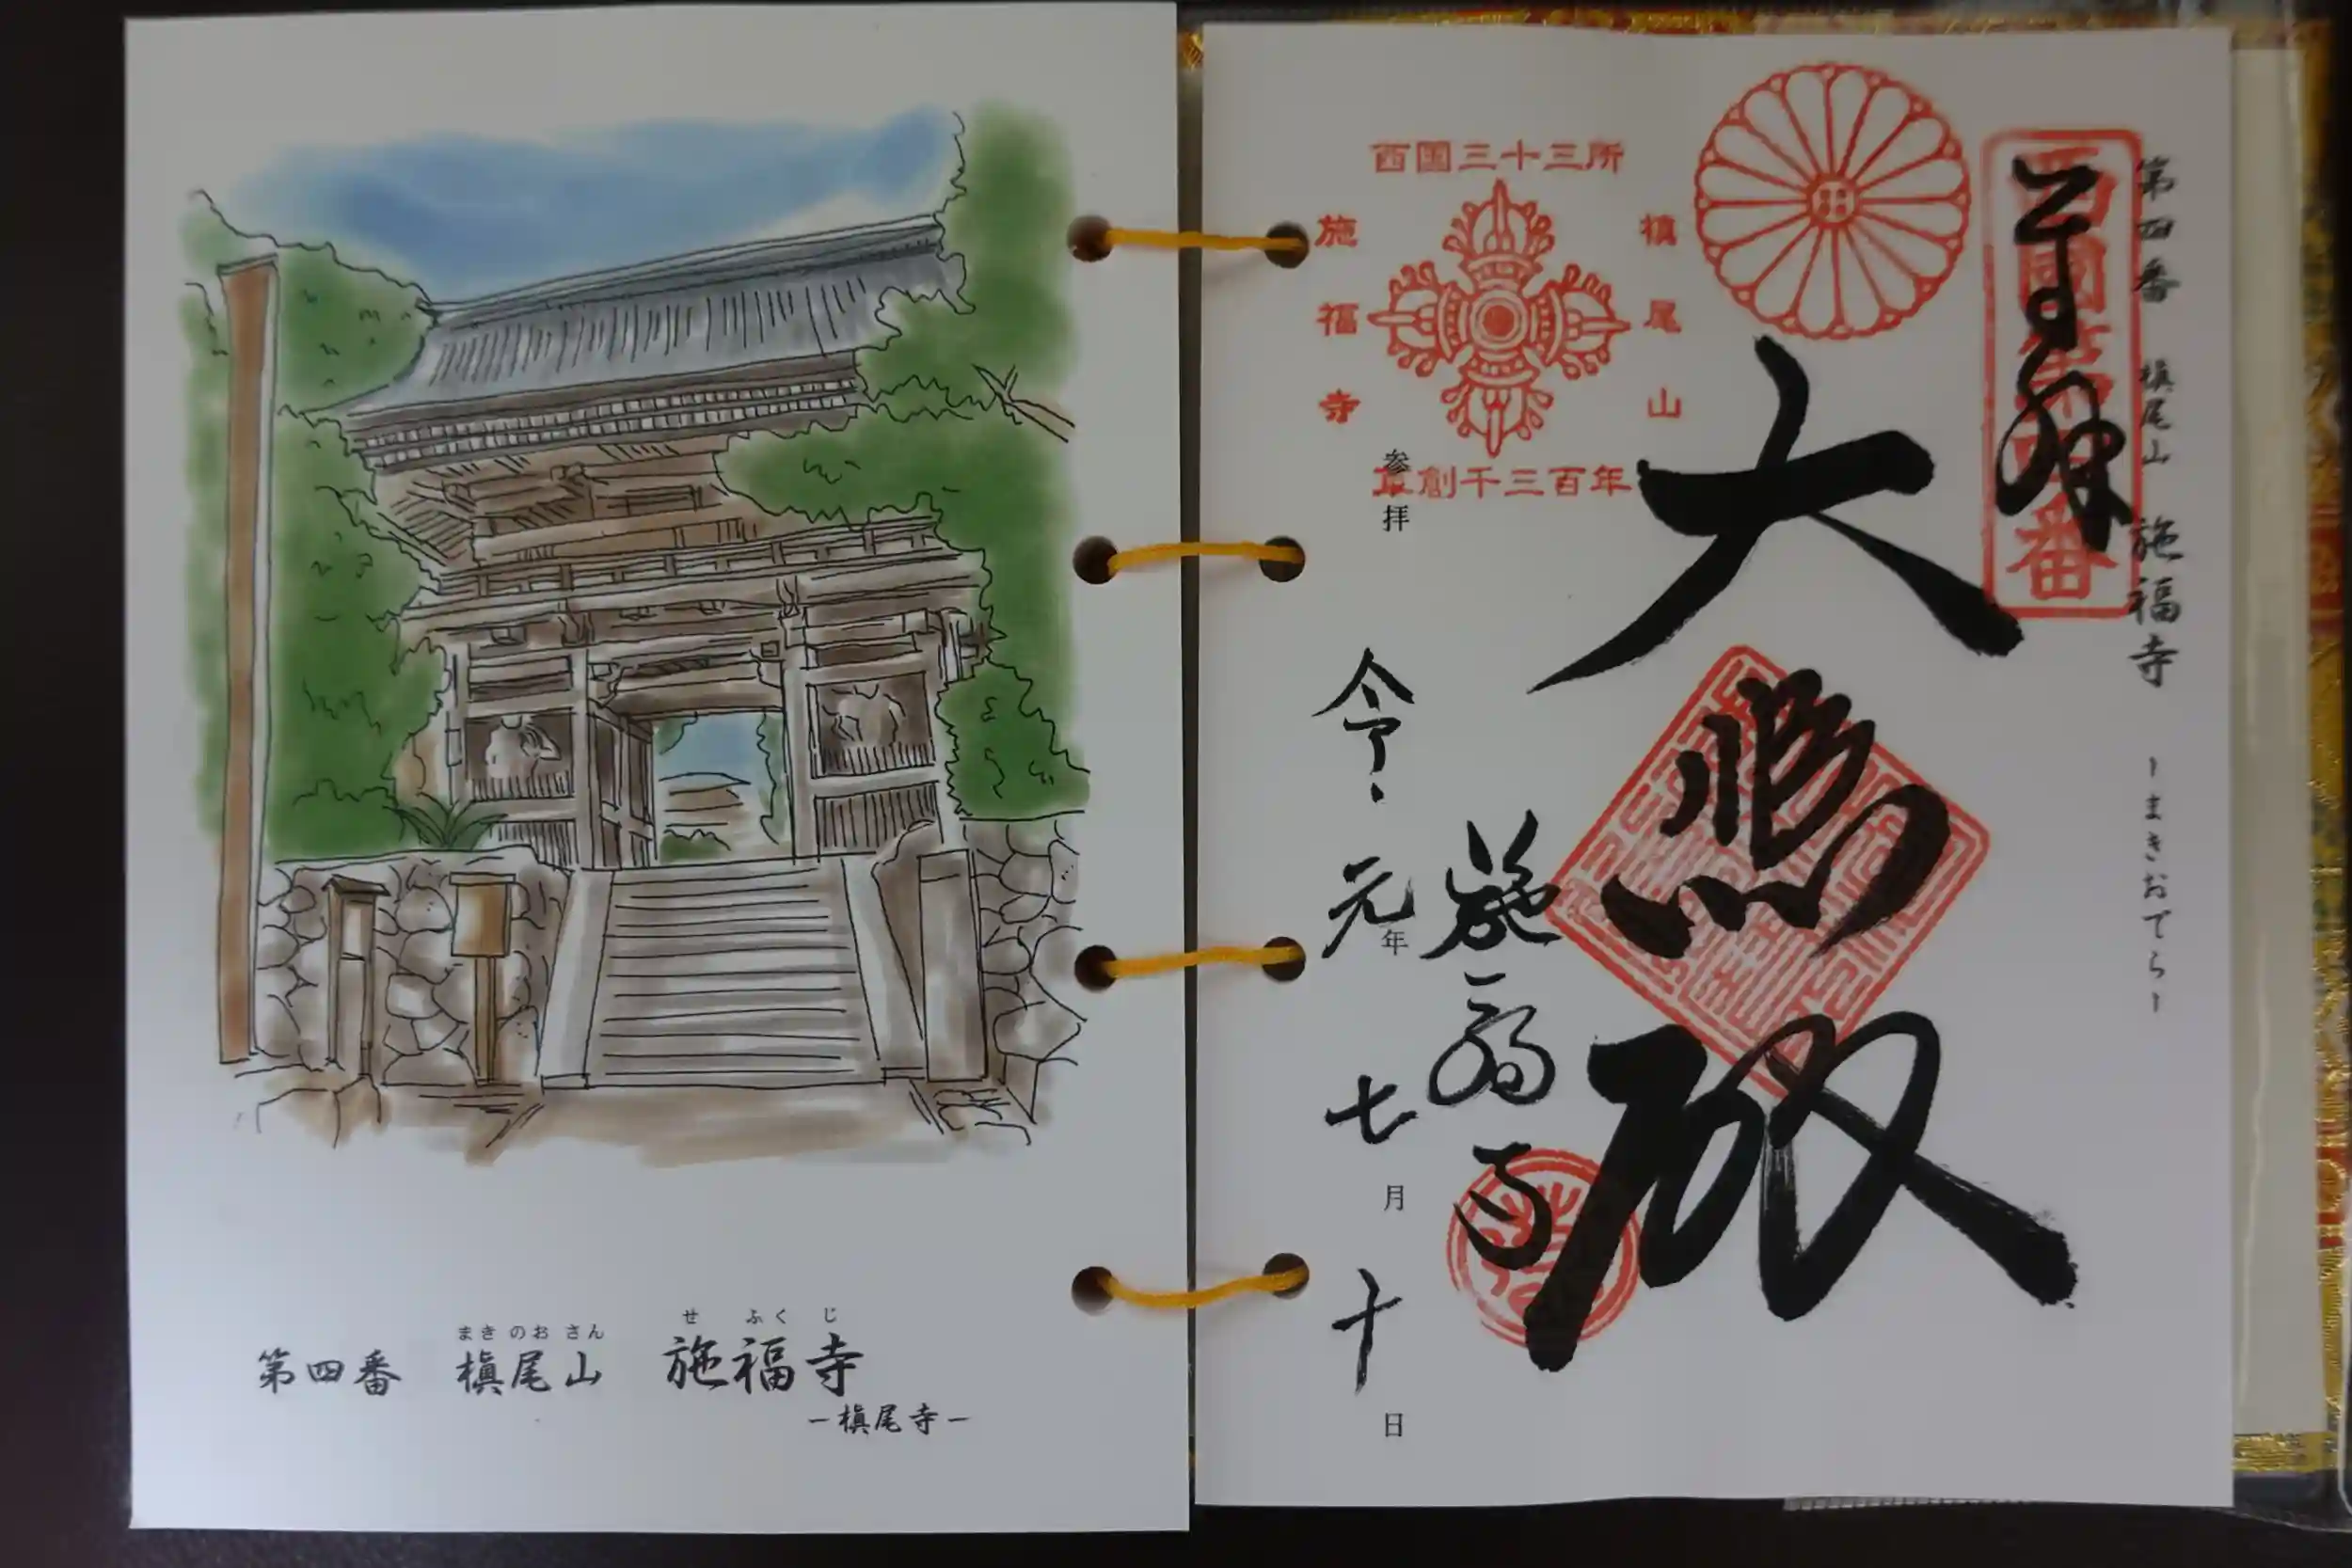 まき のお さん せ ふく じ
第四番 槇尾山 施福寺
ー槇尾寺ー
第四番 槇尾山 施福寺 ーまきおでらー
奉拝
西国第四番
大悲殿
施福寺
西国三十三所
槇尾山
施福寺
草創千三百年
参拝
令和元年七月十日